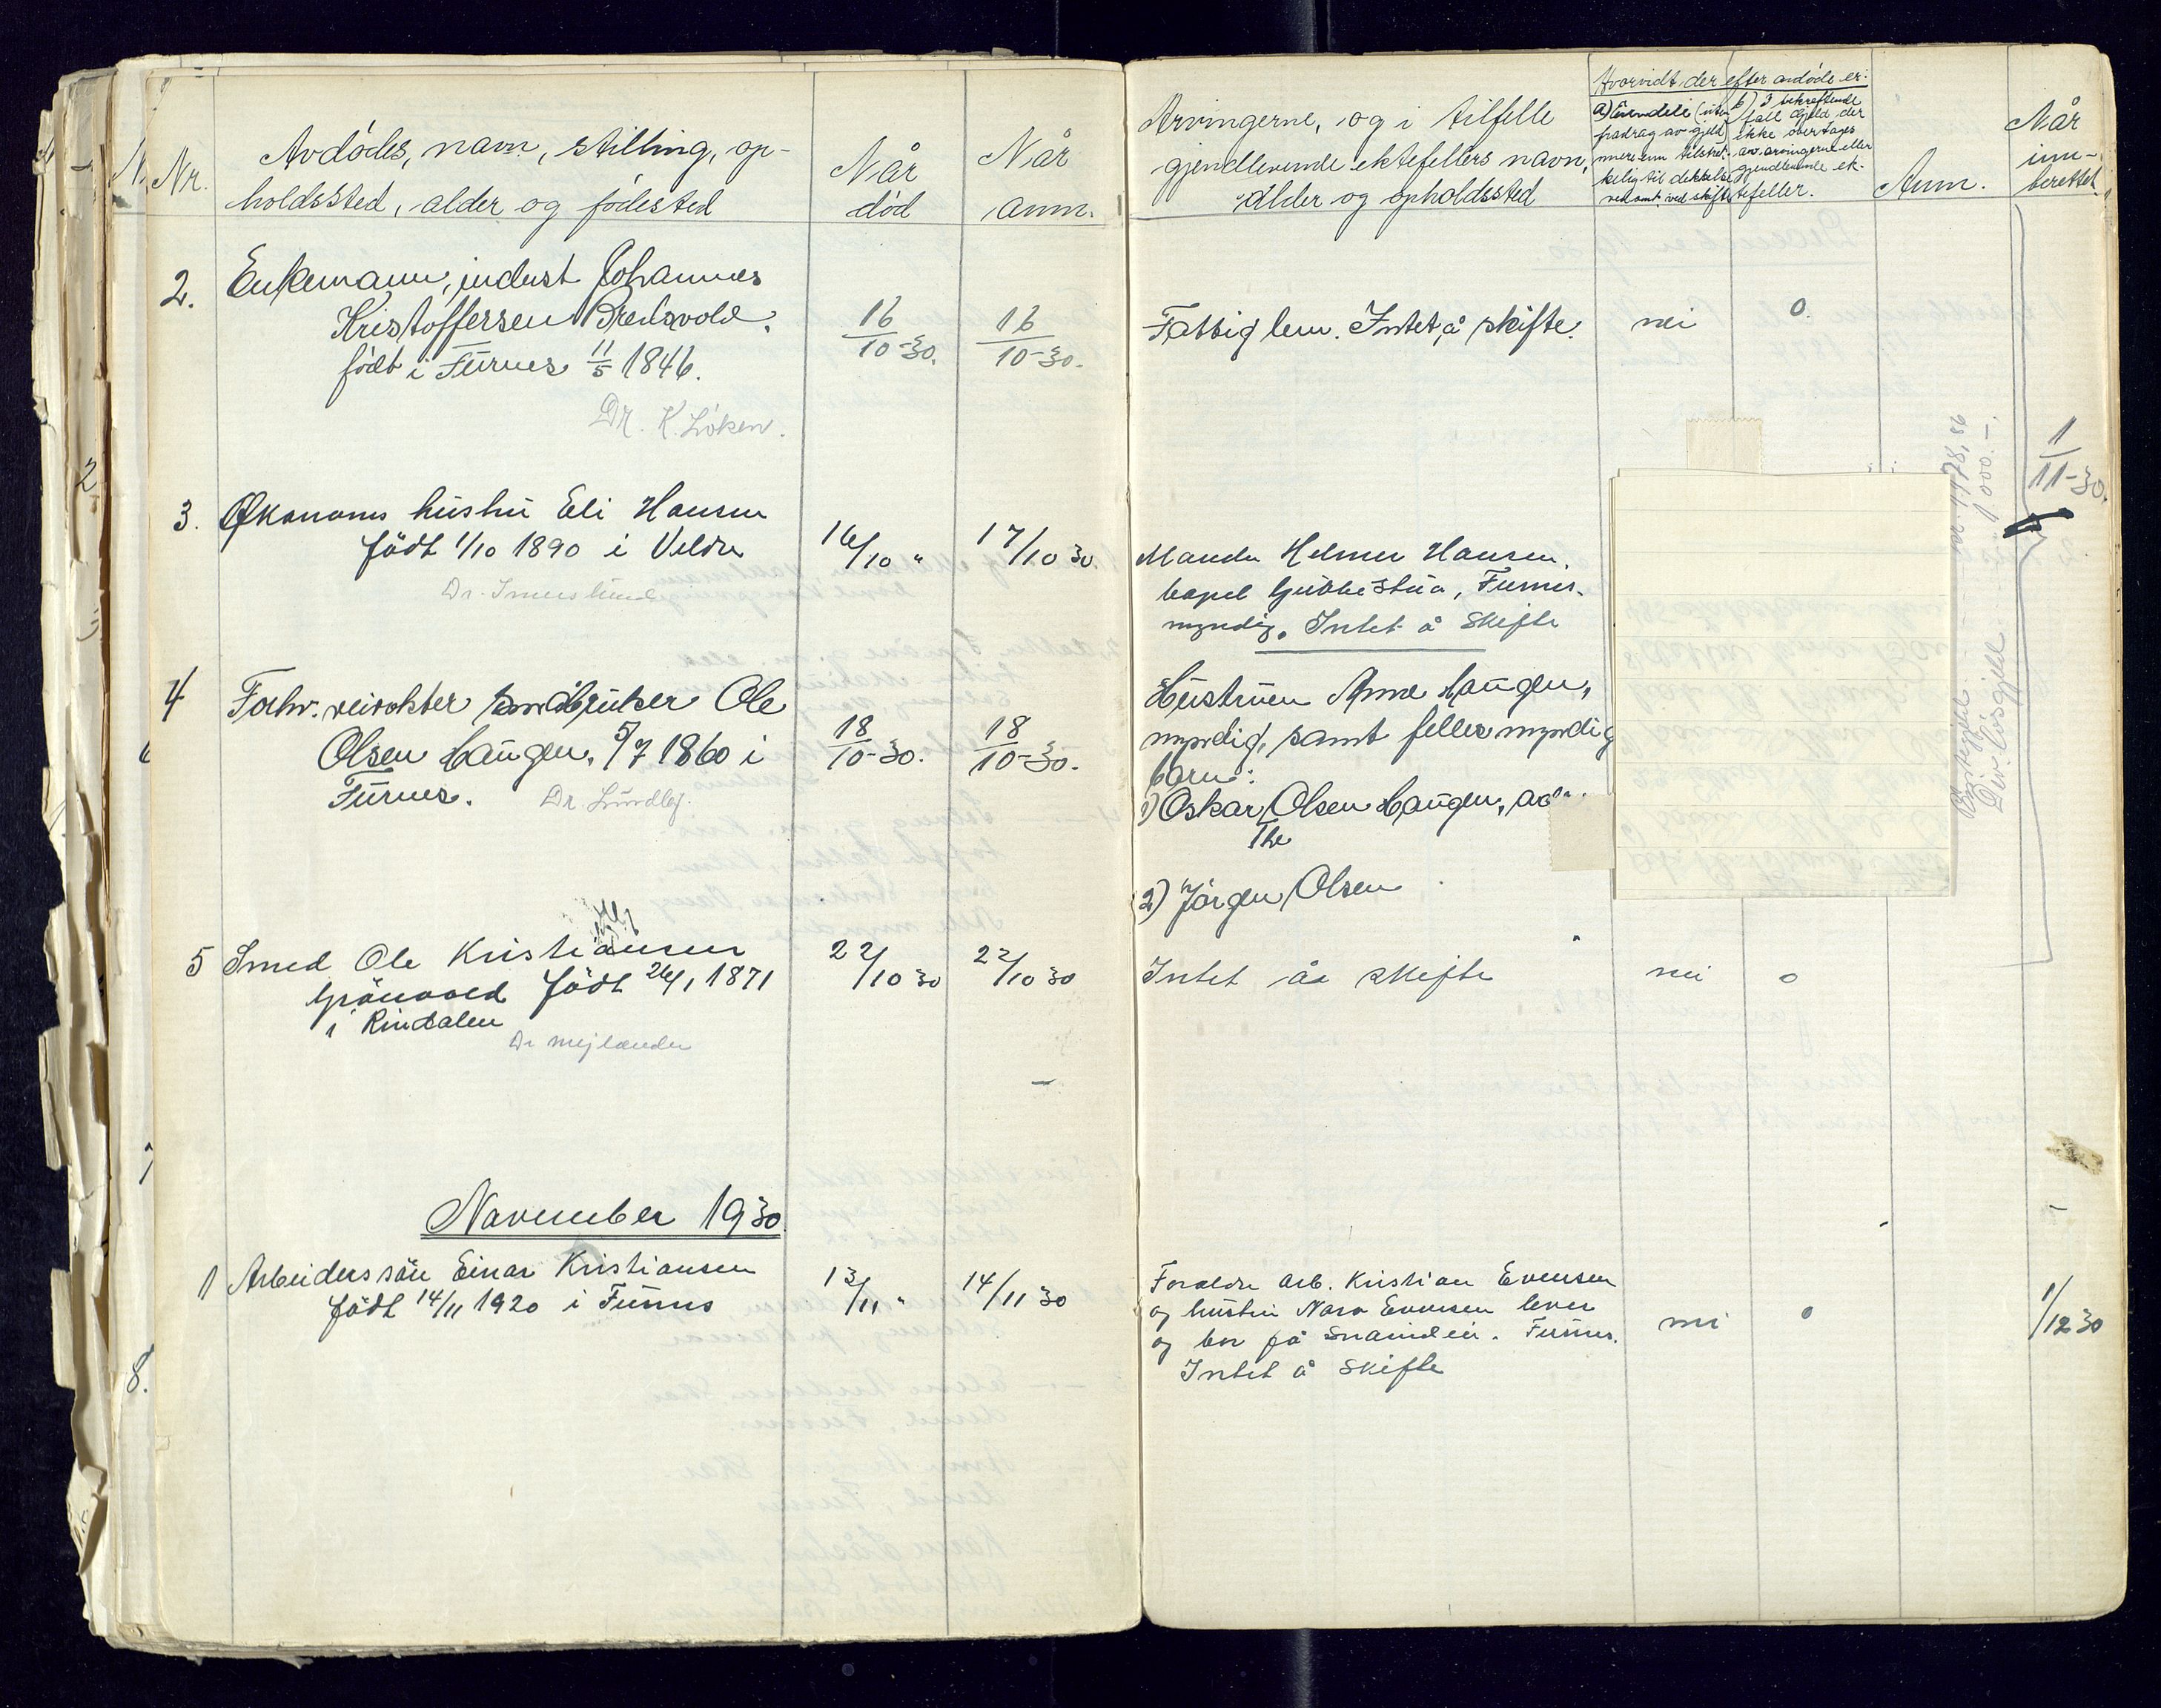 Nr.
Avdødes, navn, stilling, op-
holdssted, alder og fødested
Når
død
Når
anm.
Arvingerne, og i tilfelle
gjenlevende ektefellers navn,
alder og opholdssted
Hvorvidt der efter avdøde er:
a) Eiendele (uten
fradrag av gjeld)
mere enn tilstræk-
kelig til dekkelse
b) I bekreftende
fall gjeld der
ikke overtages
av arvingerne eller
gjenlevende ek-
tefeller.
Anm.
Når
inn-
berettet
2.
Enkemann, inderst Johannes
Kristoffersen Bredsvold.
født i Furnes 11/5 1846.
Dr. K. Löken.
16/10-30.
16/10-30.
Fattiglem. Intet å skifte.
nei
0.
1/11-30.
3.
Økonoms hustru Eli Hansen
født 1/10 1890 i Veldre
Dr. Imerslund
16/10 "
17/10 30.
Manden Helmer Hansen.
myndig. Intet å skifte
4
Forhv. veivokter småbruker Ole
Olsen Haugen, 5/7 1860 i
Furnes.
Dr. Lundby.
18/10-30.
18/10-30.
Hustruen Anne Haugen,
myndig, samt felles myndig
barn:
1) Oskar Olsen Haugen,
2) Jörgen Olsen
5
Smed Ole Kristiansen
Grönvold født 26/1 1871
i Rindalen
Dr Mejlænder
22/10 30
22/10 30
Intet å skifte
nei
0
1000.-
Div. Lösgjeld
November 1930.
1
Arbeiderssön Einar Kristiansen
født 14/11 1920 i Furnes
13/11 "
14/11 30
Foreldre arb. Kristian Evensen
og hustru Nora Evensen lever
og bor på Furnes.
Intet å skifte
nei
0
1/12 30